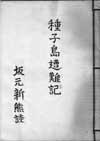 種子島遭難記
坂元新熊誌